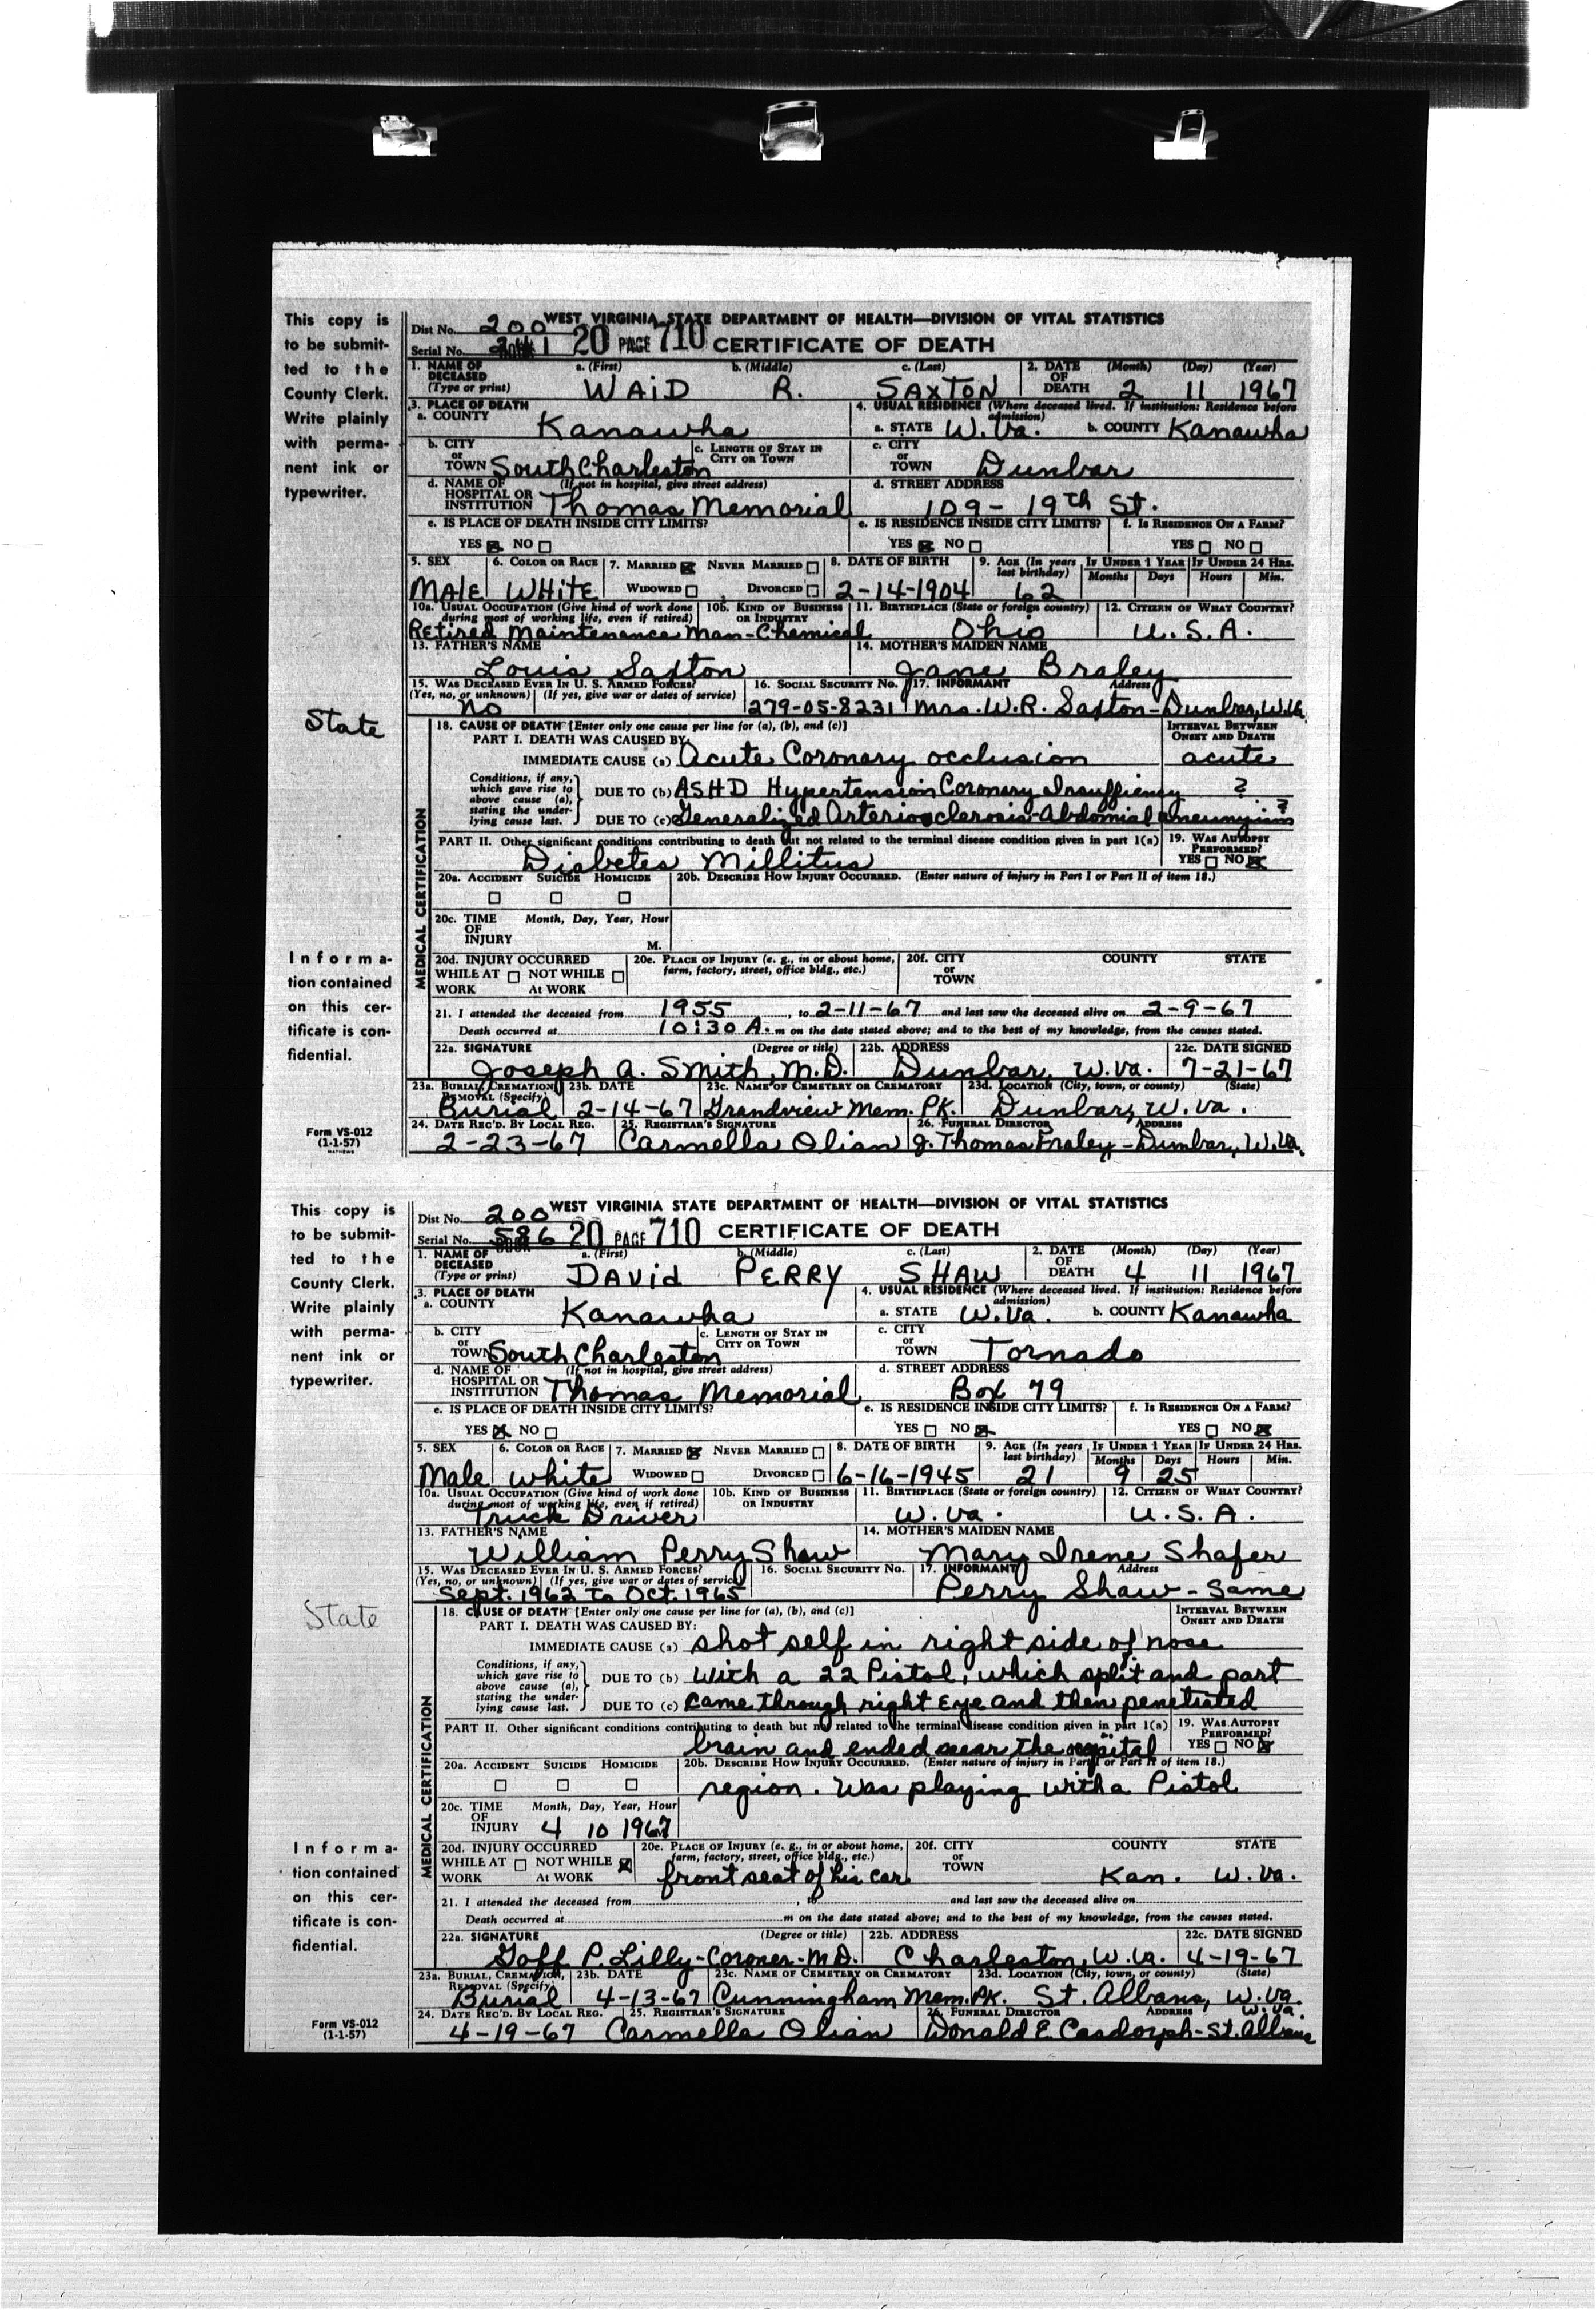 This copy is
to be submit-
ted to the
County Clerk.
Write plainly
with perma-
nent ink or
typewriter.
State
Informa-
tion contained
on this cer-
tificate is con-
fidential.
Form VS-012
(1-1-57)
WEST VIRGINIA STATE DEPARTMENT OF HEALTH—DIVISION OF VITAL STATISTICS
Dist No. 200
Serial No. 20 PAGE 710 CERTIFICATE OF DEATH
1. NAME OF DECEASED (Type or print) a. (First) b. (Middle) c. (Last) 2. DATE OF DEATH (Month) (Day) (Year)
WAID R. SAXTON 2 11 1967
3. PLACE OF DEATH 4. USUAL RESIDENCE (Where deceased lived. If institution: Residence before admission)
a. COUNTY Kanawha a. STATE W.Va. b. COUNTY Kanawha
b. CITY or TOWN South Charleston c. LENGTH OF STAY IN CITY OR TOWN c. CITY or TOWN Dunbar
d. NAME OF HOSPITAL OR INSTITUTION (If not in hospital, give street address) Thomas Memorial d. STREET ADDRESS 109 - 19th St.
e. IS PLACE OF DEATH INSIDE CITY LIMITS? e. IS RESIDENCE INSIDE CITY LIMITS? f. IS RESIDENCE ON A FARM?
YES NO YES NO YES NO
5. SEX 6. COLOR OR RACE 7. MARRIED NEVER MARRIED 8. DATE OF BIRTH 9. AGE (In years last birthday) IF UNDER 1 YEAR IF UNDER 24 HRS.
Months Days Hours Min.
MALE WHITE WIDOWED DIVORCED 2-14-1904 62
10a. USUAL OCCUPATION (Give kind of work done during most of working life, even if retired) 10b. KIND OF BUSINESS OR INDUSTRY 11. BIRTHPLACE (State or foreign country) 12. CITIZEN OF WHAT COUNTRY?
Retired Maintenance Man-Chemical Ohio U.S.A.
13. FATHER'S NAME 14. MOTHER'S MAIDEN NAME
Louis Saxton Jane Braley
15. WAS DECEASED EVER IN U. S. ARMED FORCES? 16. SOCIAL SECURITY NO. 17. INFORMANT Address
(Yes, no, or unknown) (If yes, give war or dates of service)
No 279-05-8231 Mrs. W.R. Saxton-Dunbar, W.Va
18. CAUSE OF DEATH [Enter only one cause per line for (a), (b), and (c)] INTERVAL BETWEEN ONSET AND DEATH
PART I. DEATH WAS CAUSED BY:
IMMEDIATE CAUSE (a) Acute Coronary occlusion acute
Conditions, if any, which gave rise to above cause (a), stating the underlying cause last.
DUE TO (b) ASHD Hypertension Coronary Insufficiency ?
DUE TO (c) Generalized Arteriosclerosis-Abdomial ?
PART II. Other significant conditions contributing to death but not related to the terminal disease condition given in part 1(a) 19. WAS AUTOPSY PERFORMED?
Diabetes Millitus YES NO
20a. ACCIDENT SUICIDE HOMICIDE 20b. DESCRIBE HOW INJURY OCCURRED. (Enter nature of injury in Part I or Part II of item 18.)
20c. TIME OF INJURY Month, Day, Year, Hour
M.
20d. INJURY OCCURRED 20e. PLACE OF INJURY (e. g., in or about home, farm, factory, street, office bldg., etc.) 20f. CITY or TOWN COUNTY STATE
WHILE AT WORK NOT WHILE AT WORK
MEDICAL CERTIFICATION
21. I attended the deceased from 1955, to 2-11-67 and last saw the deceased alive on 2-9-67
Death occurred at 10:30 A.m on the date stated above; and to the best of my knowledge, from the causes stated.
22a. SIGNATURE (Degree or title) 22b. ADDRESS 22c. DATE SIGNED
Joseph A. Smith, M.D. Dunbar, W.Va. 7-21-67
23a. BURIAL, CREMATION, REMOVAL (Specify) 23b. DATE 23c. NAME OF CEMETERY OR CREMATORY 23d. LOCATION (City, town, or county) (State)
Burial 2-14-67 Grandview Mem. PK. Dunbar, W.Va.
24. DATE REC'D. BY LOCAL REG. 25. REGISTRAR'S SIGNATURE 26. FUNERAL DIRECTOR ADDRESS
2-23-67 Carmella Olian J. Thomas Fraley-Dunbar, W.Va.
This copy is
to be submit-
ted to the
County Clerk.
Write plainly
with perma-
nent ink or
typewriter.
State
Informa-
tion contained
on this cer-
tificate is con-
fidential.
Form VS-012
(1-1-57)
WEST VIRGINIA STATE DEPARTMENT OF HEALTH—DIVISION OF VITAL STATISTICS
Dist No. 200
Serial No. 586 20 PAGE 710 CERTIFICATE OF DEATH
1. NAME OF DECEASED (Type or print) a. (First) b. (Middle) c. (Last) 2. DATE OF DEATH (Month) (Day) (Year)
DAVID PERRY SHAW 4 11 1967
3. PLACE OF DEATH 4. USUAL RESIDENCE (Where deceased lived. If institution: Residence before admission)
a. COUNTY Kanawha a. STATE W.Va. b. COUNTY Kanawha
b. CITY or TOWN South Charleston c. LENGTH OF STAY IN CITY OR TOWN c. CITY or TOWN Tornado
d. NAME OF HOSPITAL OR INSTITUTION (If not in hospital, give street address) Thomas Memorial d. STREET ADDRESS Box 79
e. IS PLACE OF DEATH INSIDE CITY LIMITS? e. IS RESIDENCE INSIDE CITY LIMITS? f. IS RESIDENCE ON A FARM?
YES NO YES NO YES NO
5. SEX 6. COLOR OR RACE 7. MARRIED NEVER MARRIED 8. DATE OF BIRTH 9. AGE (In years last birthday) IF UNDER 1 YEAR IF UNDER 24 HRS.
Months Days Hours Min.
Male white WIDOWED DIVORCED 6-16-1945 21 9 25
10a. USUAL OCCUPATION (Give kind of work done during most of working life, even if retired) 10b. KIND OF BUSINESS OR INDUSTRY 11. BIRTHPLACE (State or foreign country) 12. CITIZEN OF WHAT COUNTRY?
Truck Driver W.Va. U.S.A.
13. FATHER'S NAME 14. MOTHER'S MAIDEN NAME
William Perry Shaw Mary Irene Shafer
15. WAS DECEASED EVER IN U. S. ARMED FORCES? 16. SOCIAL SECURITY NO. 17. INFORMANT Address
(Yes, no, or unknown) (If yes, give war or dates of service)
Sept. 1962 To Oct. 1965 Perry Shaw - Same
18. CAUSE OF DEATH [Enter only one cause per line for (a), (b), and (c)] INTERVAL BETWEEN ONSET AND DEATH
PART I. DEATH WAS CAUSED BY:
IMMEDIATE CAUSE (a) shot self in right side of nose
Conditions, if any, which gave rise to above cause (a), stating the underlying cause last.
DUE TO (b) with a 22 Pistol, which split and part
DUE TO (c) came through right Eye and then penetrated
PART II. Other significant conditions contributing to death but not related to the terminal disease condition given in part 1(a) 19. WAS AUTOPSY PERFORMED?
brain and ended near the YES NO
20a. ACCIDENT SUICIDE HOMICIDE 20b. DESCRIBE HOW INJURY OCCURRED. (Enter nature of injury in Part I or Part II of item 18.)
region. Was playing with a Pistol
20c. TIME OF INJURY Month, Day, Year, Hour
4 10 1967
20d. INJURY OCCURRED 20e. PLACE OF INJURY (e. g., in or about home, farm, factory, street, office bldg., etc.) 20f. CITY or TOWN COUNTY STATE
WHILE AT WORK NOT WHILE AT WORK front seat of his car. Kan. W.Va.
MEDICAL CERTIFICATION
21. I attended the deceased from , to and last saw the deceased alive on
Death occurred at m on the date stated above; and to the best of my knowledge, from the causes stated.
22a. SIGNATURE (Degree or title) 22b. ADDRESS 22c. DATE SIGNED
Goff P. Lilly-Coroner-MD. Charleston, W.Va. 4-19-67
23a. BURIAL, CREMATION, REMOVAL (Specify) 23b. DATE 23c. NAME OF CEMETERY OR CREMATORY 23d. LOCATION (City, town, or county) (State)
Burial 4-13-67 Cunningham Mem. PK. St. Albans, W.Va.
24. DATE REC'D. BY LOCAL REG. 25. REGISTRAR'S SIGNATURE 26. FUNERAL DIRECTOR ADDRESS W.Va.
4-19-67 Carmella Olian Donald E. Casdorph-St. Albans